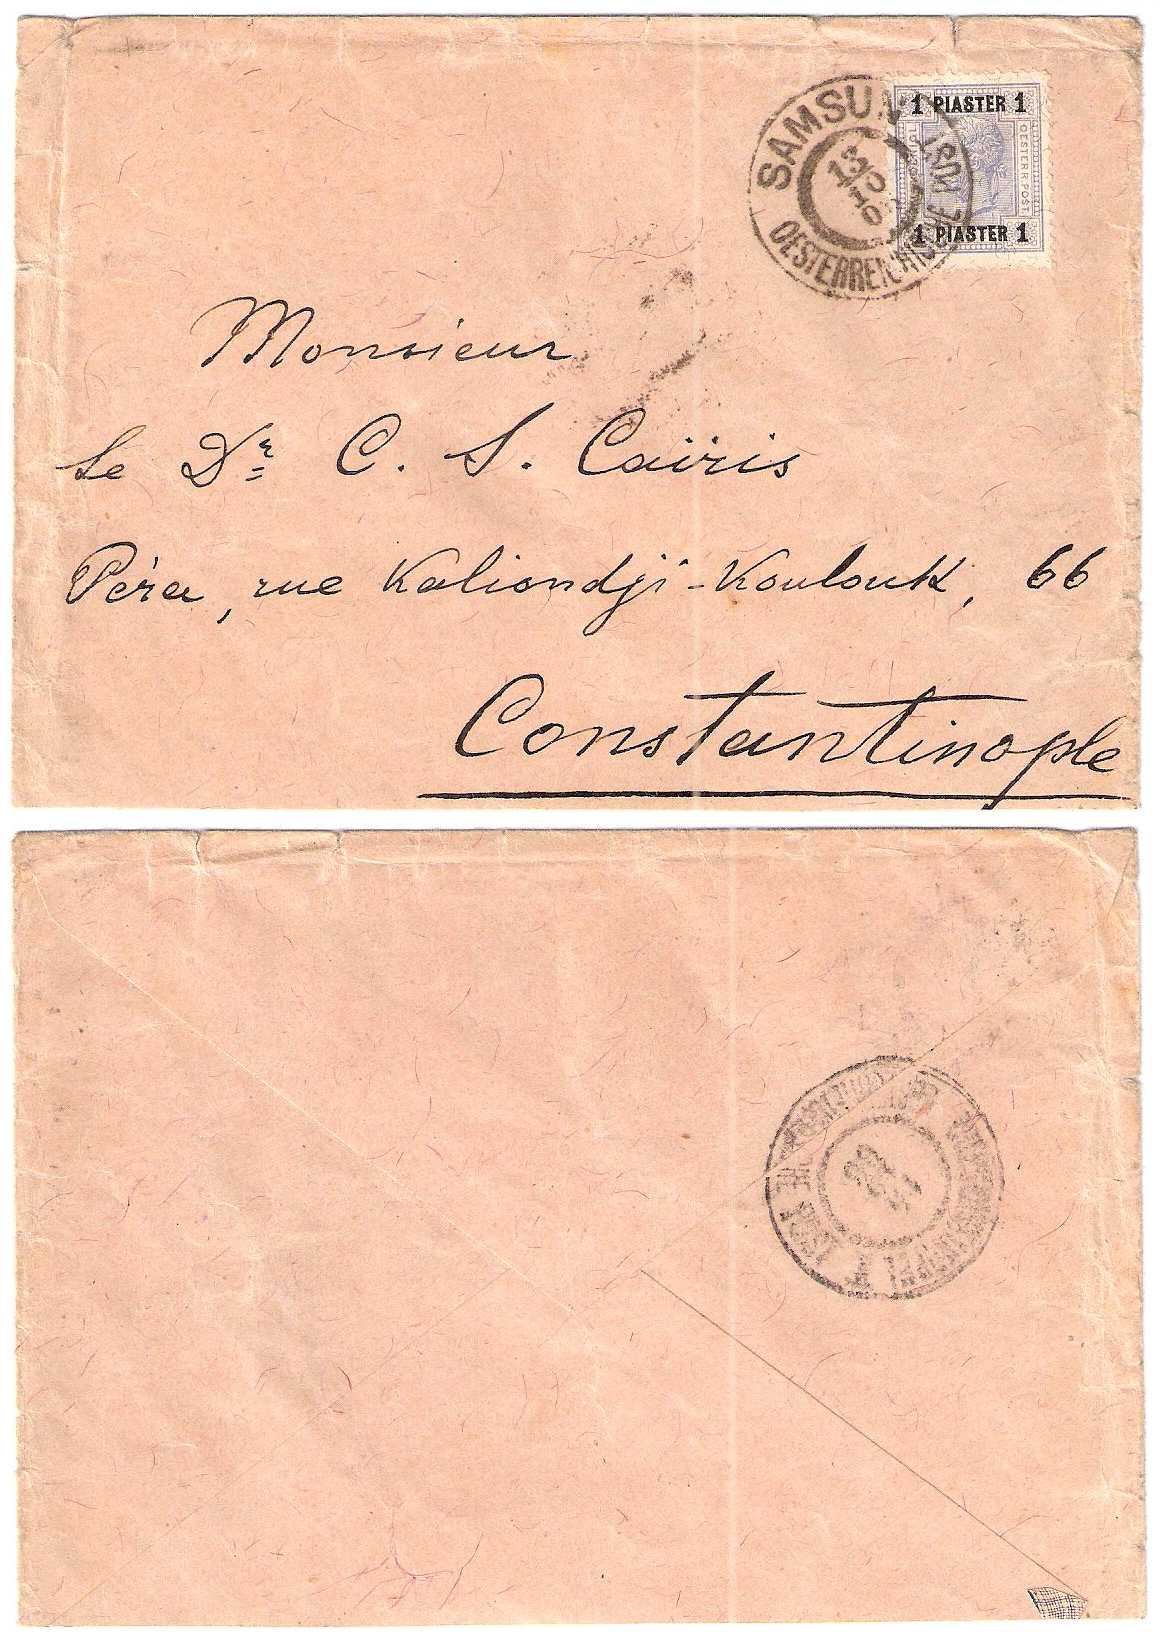 SAMSUN
OESTERREICHISCHE POST
13/5
1 PIASTER 1
OESTERR. POST.
1 PIASTER 1
Monsieur
Le Dr. C. S. Caïris
Péra, rue Kaliondji-Koulouk, 66
Constantinople